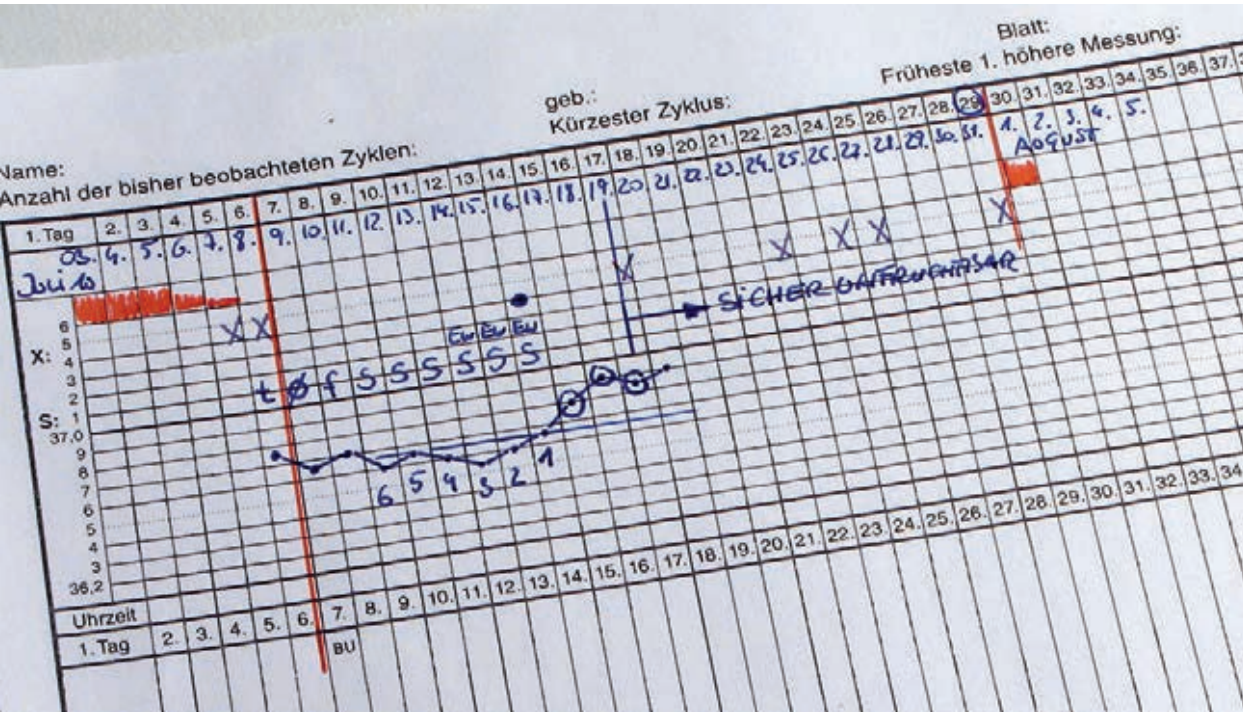 Blatt:
geb.:
Früheste 1. höhere Messung:
Name:
Kürzester Zyklus:
Anzahl der bisher beobachteten Zyklen:
1. Tag 2. 3. 4. 5. 6. 7. 8. 9. 10. 11. 12. 13. 14. 15. 16. 17. 18. 19. 20. 21. 22. 23. 24. 25. 26. 27. 28. 29. 30. 31. 32. 33. 34. 35. 36. 37.
03. 4. 5. 6. 7. 8. 9. 10. 11. 12. 13. 14. 15. 16. 17. 18. 19. 20. 21. 22. 23. 24. 25. 26. 27. 28. 29. 30. 31. 1. 2. 3. 4. 5.
Juli 10
AUGUST
X X X X X X X
SICHER UNFRUCHTBAR
Ew Ew Ew
t ø f S S S S S S
X:
6
5
4
3
2
S: 1
37,0
9
8
7
6
5
4
3
36,2
6 5 4 3 2 1
Uhrzeit
1. Tag 2. 3. 4. 5. 6. 7. 8. 9. 10. 11. 12. 13. 14. 15. 16. 17. 18. 19. 20. 21. 22. 23. 24. 25. 26. 27. 28. 29. 30. 31. 32. 33. 34.
BU